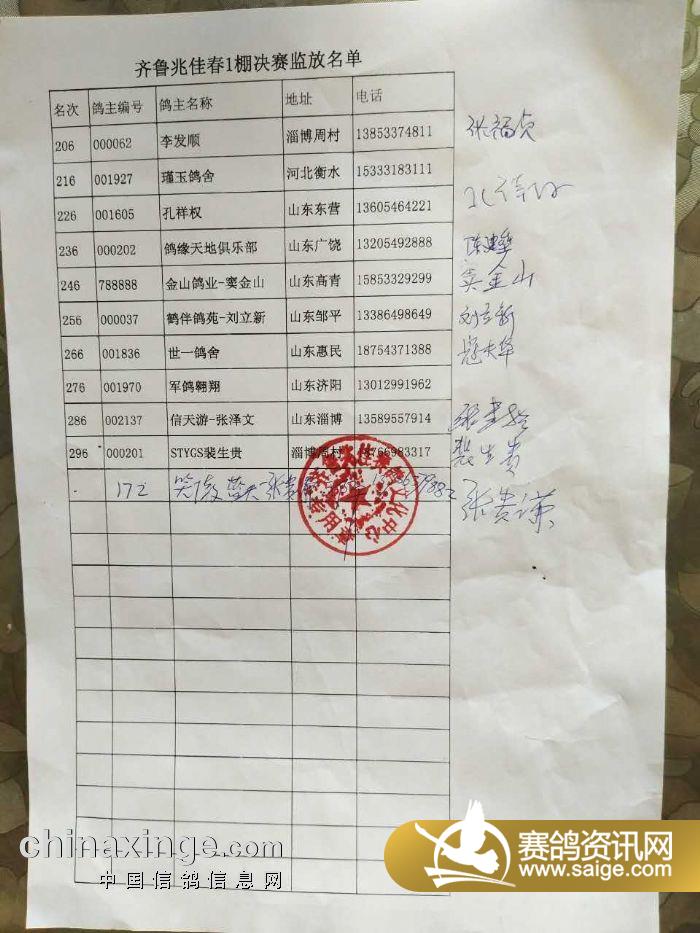 齐鲁兆佳春1棚决赛监放名单
名次 鸽主编号 鸽主名称 地址 电话
206 000062 李发顺 淄博周村 13853374811 张福贞
216 001927 瑾玉鸽舍 河北衡水 15333183111
226 001605 孔祥权 山东东营 13605464221
236 000202 鸽缘天地俱乐部 山东广饶 13205492888
246 788888 金山鸽业-窦金山 山东高青 15853329299 窦金山
256 000037 鹤伴鸽苑-刘立新 山东邹平 13386498649 刘立新
266 001836 世一鸽舍 山东惠民 18754371388
276 001970 军鸽翱翔 山东济阳 13012991962
286 002137 信天游-张泽文 山东淄博 13589557914
296 000201 STYGS裴生贵 淄博周村 766983317 裴生贵
172 笑傲蓝天-张贵 张贵谦
chinaxinge.com
中国信鸽信息网
赛鸽资讯网
www.saige.com